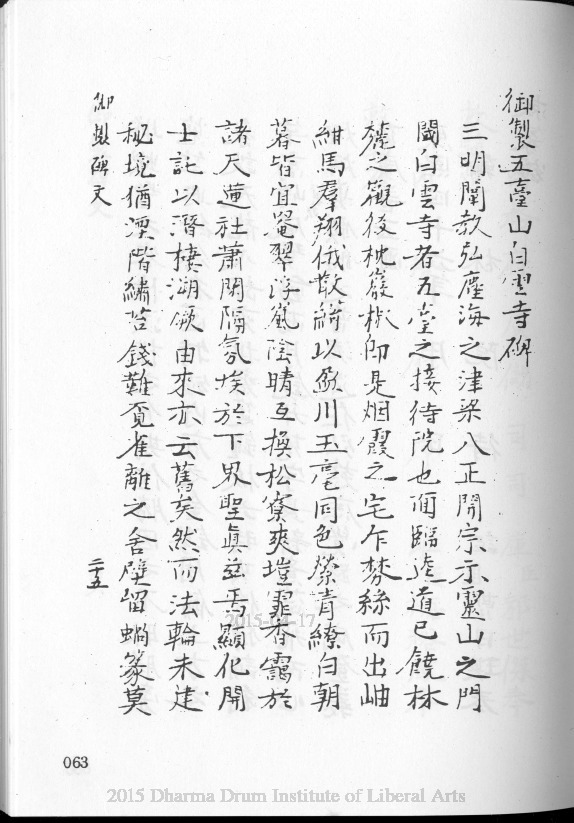 御製五臺山白雲寺碑
三明闡教弘塵海之津梁八正開宗示靈山之門
閫白雲寺者五臺之接待院也面臨逵道已饒林
麓之觀後枕巖椒即是烟霞之宅乍棼絲而出岫
紺馬羣翔俄散綺以縈川玉毫同色縈青繚白朝
暮皆宜罨翠浮嵐陰晴互換松寮爽塏霏香靄於
諸天蓮社蕭閒隔氛埃於下界聖真茲焉顯化開
士託以潛棲溯厥由來亦云舊矣然而法輪未建
秘境猶湮階繡苔錢難覓雀離之舍壁留蝸篆莫
御製碑文
二十五
063
2015-04-17
2015 Dharma Drum Institute of Liberal Arts